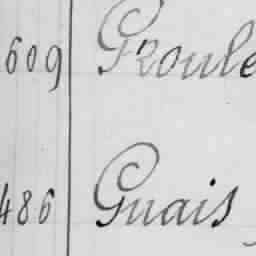 609 Groule
486 Guais